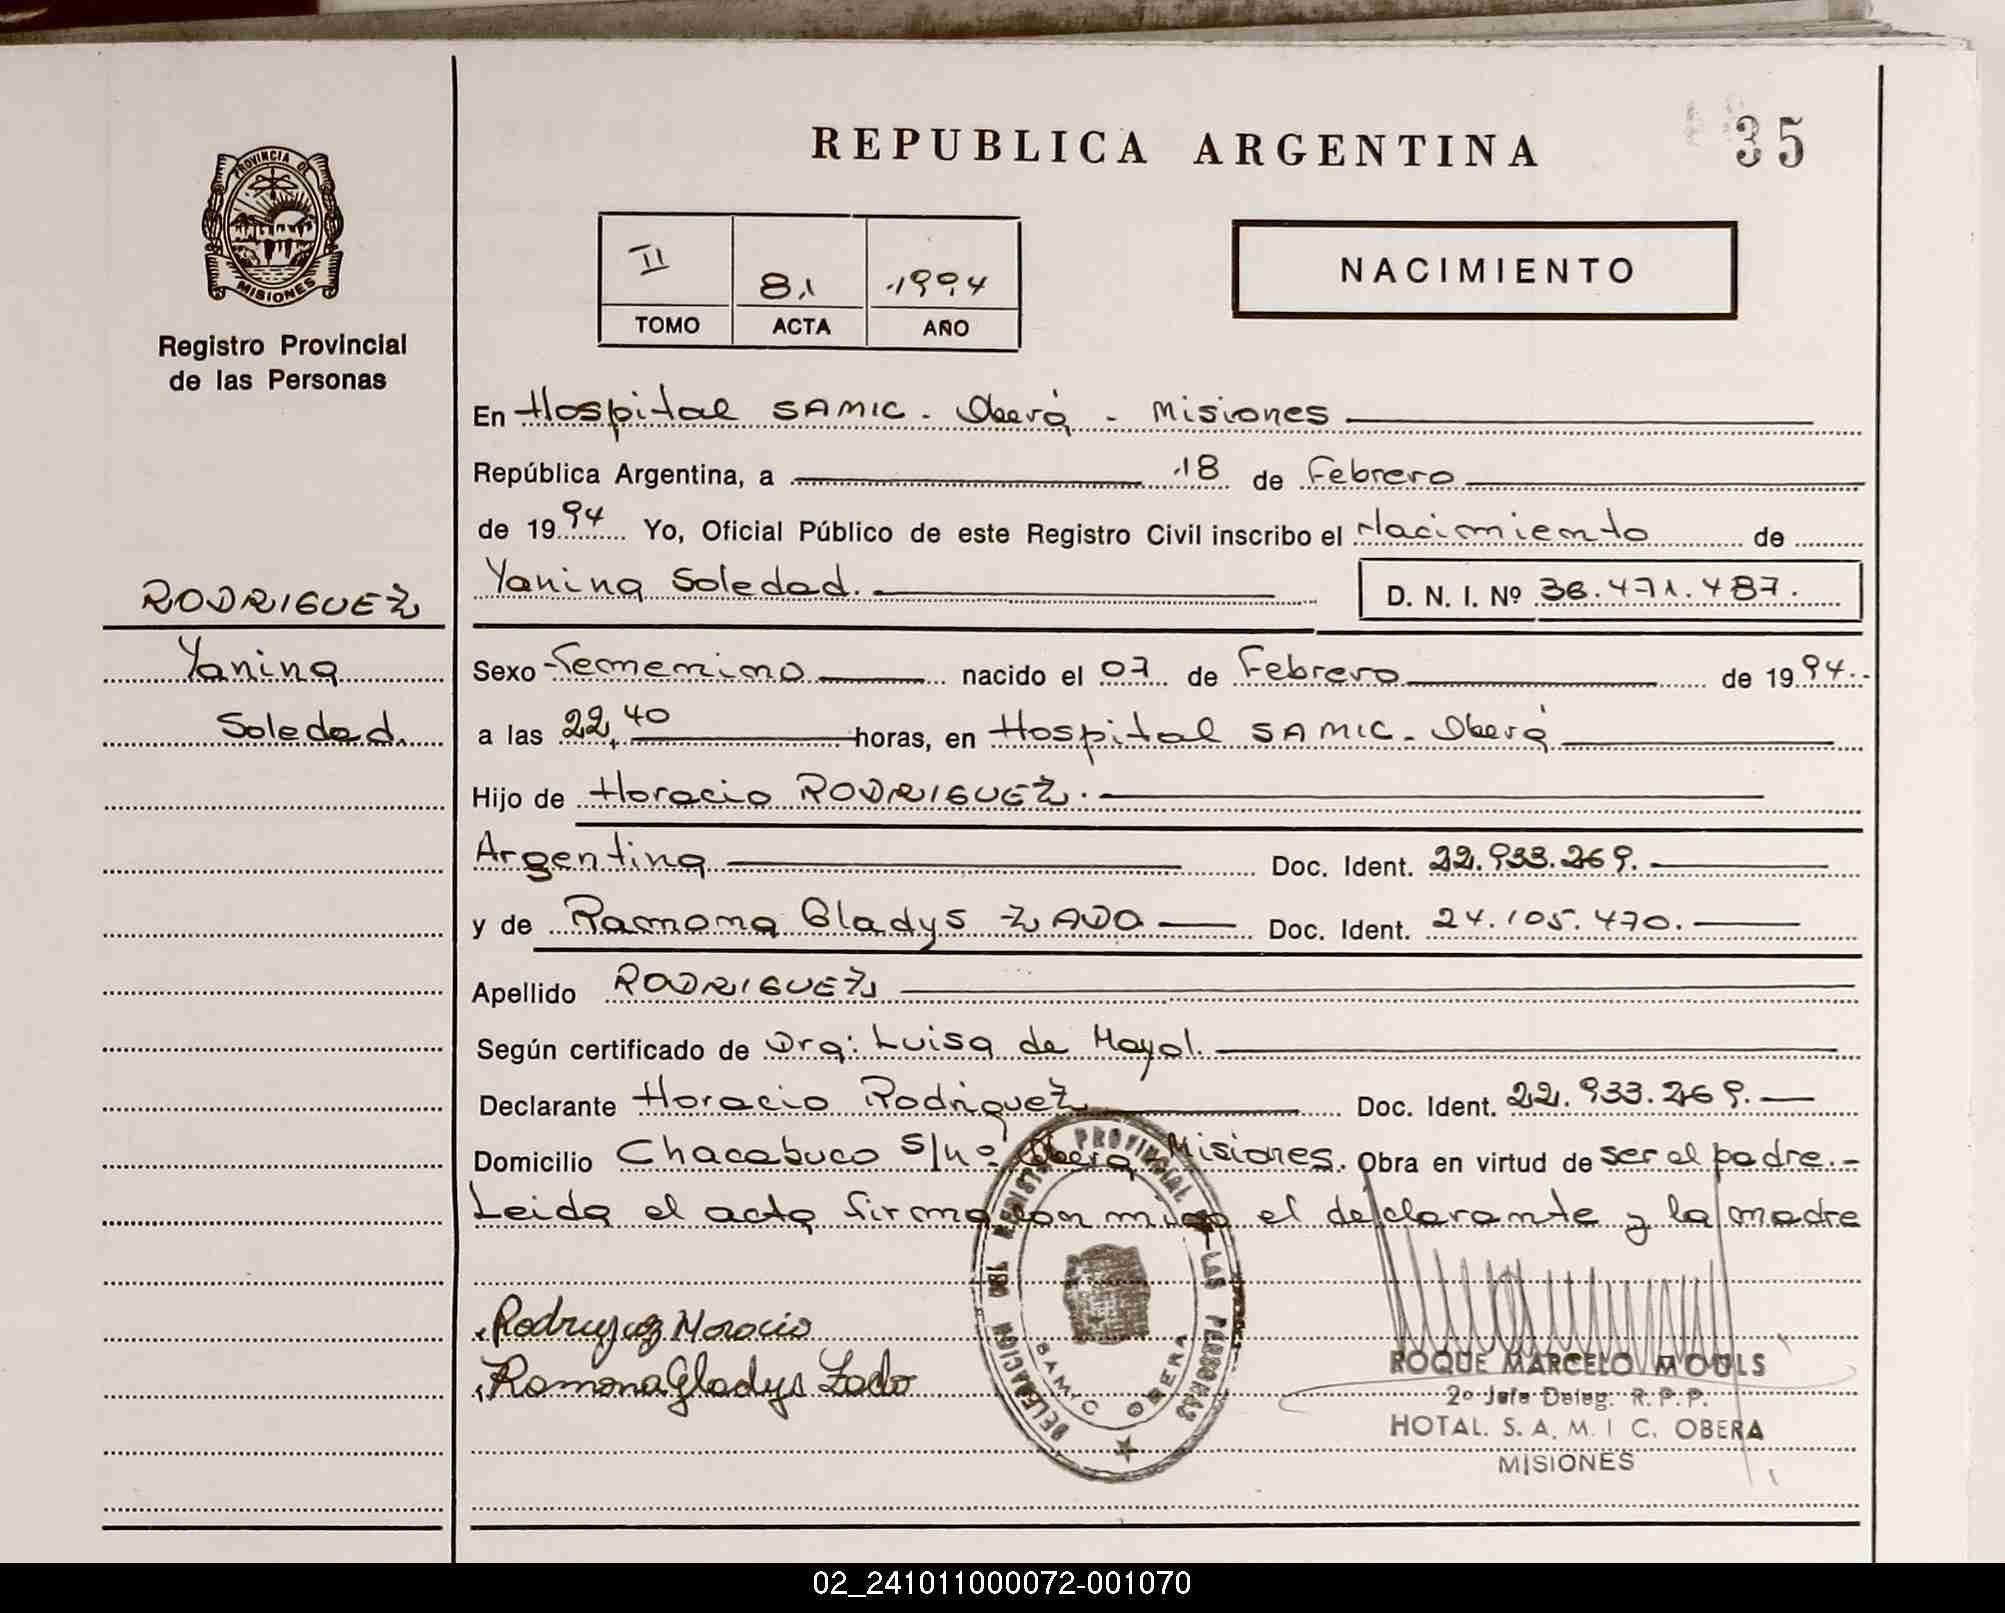 REPUBLICA ARGENTINA
35
PROVINCIA DE
MISIONES
Registro Provincial
de las Personas
II 81 1994
TOMO ACTA AÑO
NACIMIENTO
En Hospital SAMIC - Oberá - Misiones
República Argentina, a 18 de Febrero
de 1994 Yo, Oficial Público de este Registro Civil inscribo el Nacimiento de
RODRIGUEZ
Yanina Soledad. D. N. I. Nº 38.471.487.
Yanina
Sexo Femenino nacido el 07 de Febrero de 1994.-
Soledad.
a las 22,40 horas, en Hospital SAMIC - Oberá
Hijo de Horacio RODRIGUEZ.
Argentina Doc. Ident. 22.933.269.
y de Ramona Gladys ZADO Doc. Ident. 24.105.470.
Apellido RODRIGUEZ
Según certificado de Dra: Luisa de Mayol.
Declarante Horacio Rodriguez Doc. Ident. 22.933.269.
Domicilio Chacabuco S/nº Oberá Misiones. Obra en virtud de ser el padre.-
Leida el acta firma con migo el declarante y la madre
Rodriguez Horacio
Ramona Gladys Zado
DELEGACION DEL REGISTRO PROVINCIAL DE LAS PERSONAS
SAMIC OBERA
ROQUE MARCELO MOULS
2º Jefe Deleg. R.P.P.
HOTAL. S. A. M. I C. OBERA
MISIONES
02_241011000072-001070